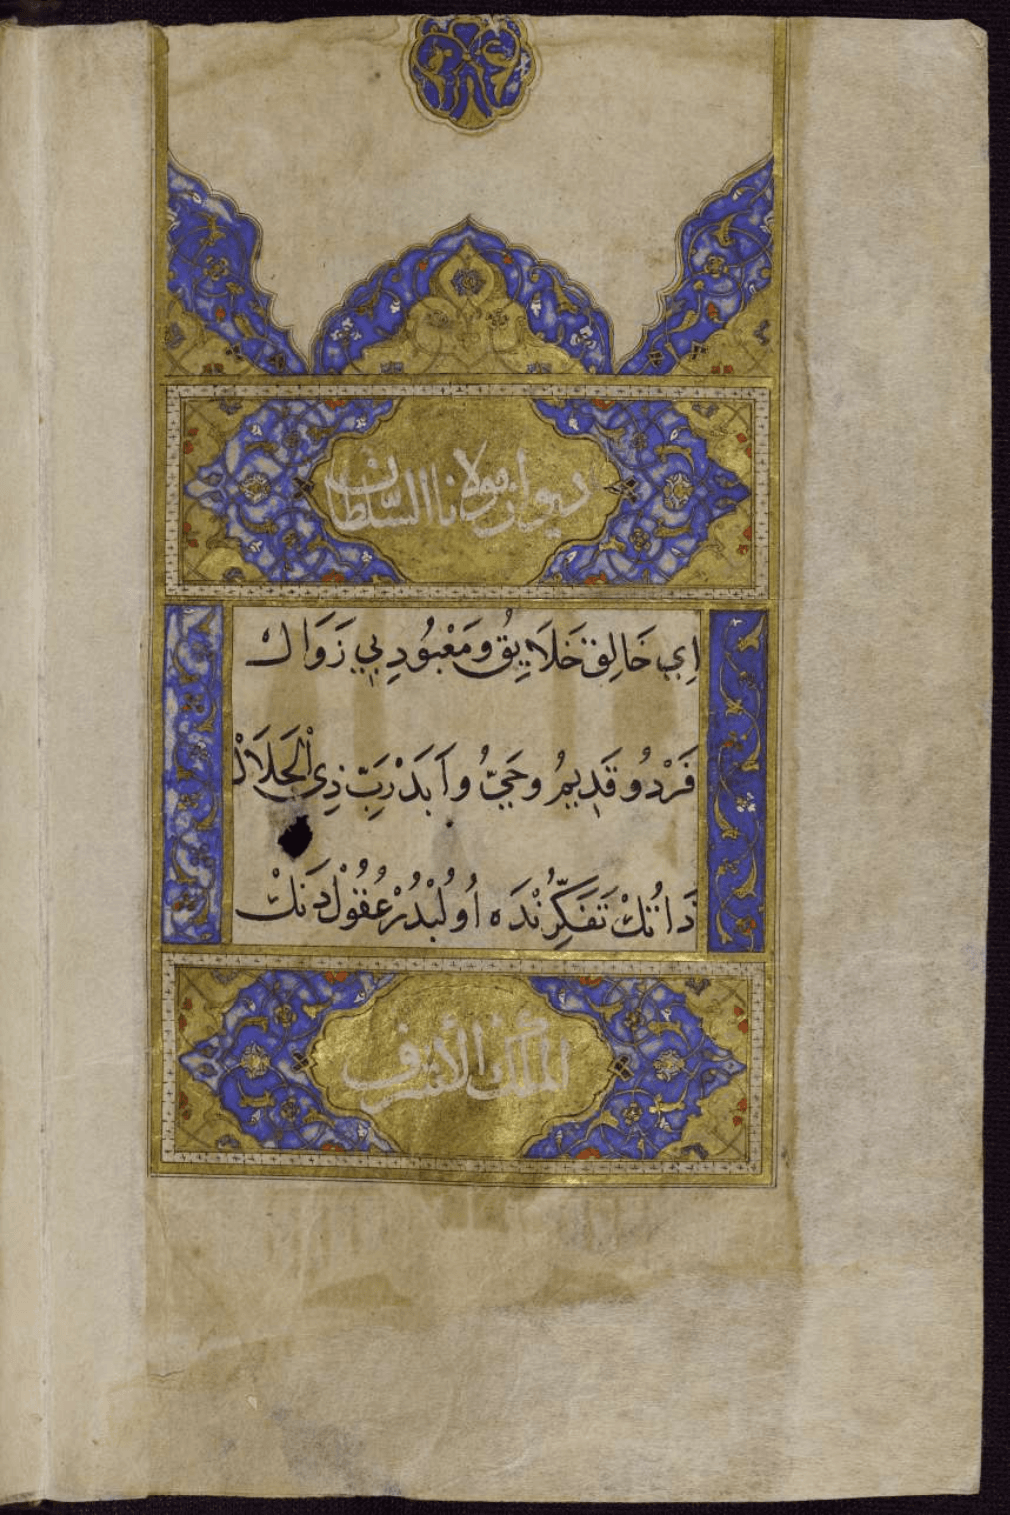 ديوان مولانا السلطان
اِي خَالِقِ خَلَايِقُ و مَعْبُودِ بِي زَوَال
فَرْدُ و قَدِيمُ و حَيُّ و اَبَدْ رَبِّ ذِي الْجَلَالْ
ذَاتُكْ تَفَكُّرِنْدَه اُولُبْدُرْ عُقُولْ دَنكْ
الملك الأشرف